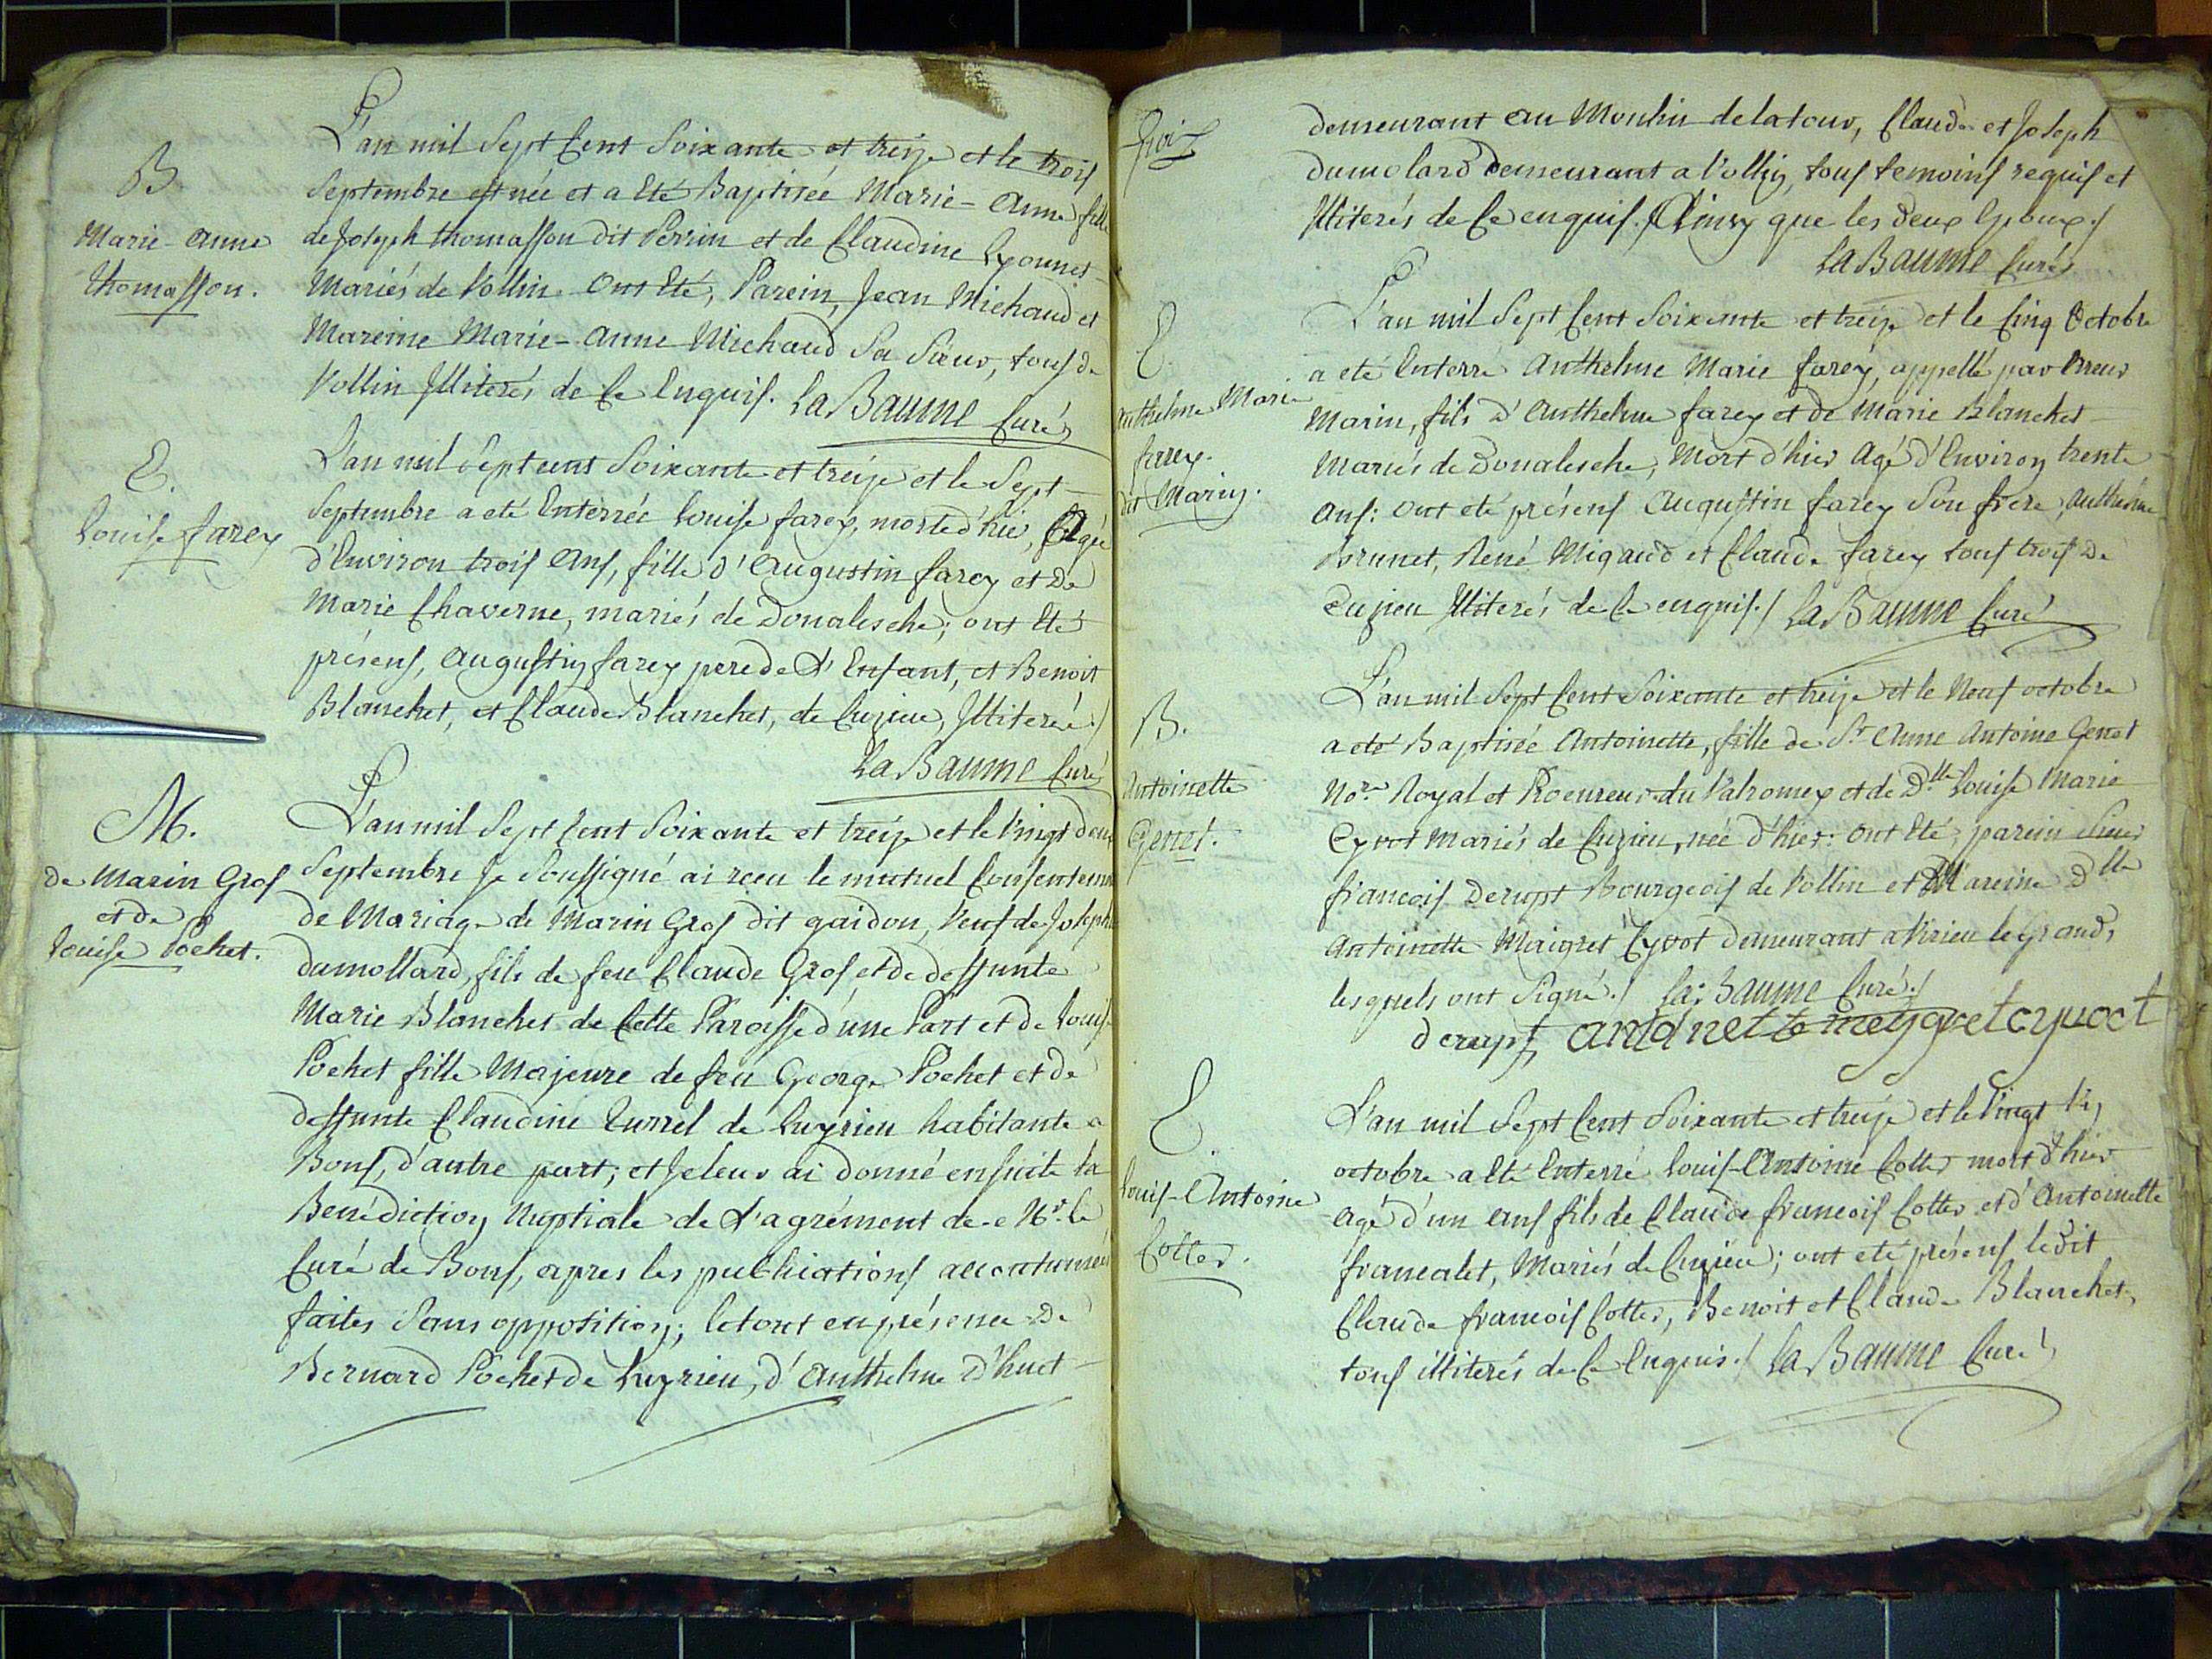 B.
Marie-Anne
thomasson.
L'an mil Sept Cent Soixante et treize et le trois
Septembre est née et a Eté Baptisée Marie-Anne fille
de Joseph thomasson dit Perrin et de Claudine Lyonnet
Mariés de Vollin. Ont Eté, Parein, Jean Michaud et
Mareine Marie-Anne Michaud Sa Sœur, tous de
Vollin Illiterés de Ce Enquis. La Baume Curé
E.
Louise farey
L'an mil Sept cent Soixante et treize et le Sept
Septembre a eté Enterrée Louise farey, morte d'hier, Agée
d'Environ trois Ans, fille d'Augustin farey et De
Marie Chaverne, mariés de Donalesche; ont Eté
présens, Augustin farey pere de L'Enfant, et Benoit
Blanchet, et Claude Blanchet, de Cuzieu, Illiteré./
La Baume Curé
M.
de Marin Gros
et de
Louise Pochet.
L'an mil Sept Cent Soixante et treize et le Vingt deux
Septembre Je Soussigné ai receu le mutuel Consentement
de Mariage de Marin Gros dit gaidon, Veuf de Josephe
dumollard, fils de feu Claude Gros, et de deffunte
Marie Blanchet de Cette Paroisse d'une Part et de Louise
Pochet fille Majeure de feu George Pochet et de
deffunte Claudine Turrel de Luyrieu habitante a
Bons, d'autre part; et Je leur ai donné ensuite la
Benédiction Nuptiale de L'agrément de Mr. le
Curé de Bons, apres les publications accoutumées
faites Sans opposition; le tout en présence De
Bernard Pochet de Luyrieu, d'Anthelme D'huet
demeurant au Moulin de latour, Claude et Joseph
dumolard demeurant a Vollin, tous temoins requis et
Illiterés de Ce enquis. Ainsy que les deux Epoux./
La Baume Curé
E.
Anthelme Marie
farey.
dit Marin.
L'an mil Sept Cent Soixante et treize et le Cinq Octobre
a eté Enterré Anthelme Marie farey, appellé par Erreur
Marin, fils d'Anthelme farey et de Marie Blanchet
Mariés de Donalesche, Mort d'hier Agé d'Environ trente
Ans: ont eté présens Augustin farey Son frere, Anthelme
Brunet, René Migaud et Claude farey tous trois De
Cuzieu Illiterés de Ce enquis./ La Baume Curé
B.
Antoinette
Genet.
L'an mil Sept Cent Soixante et treize et le Neuf octobre
a eté Baptisée Antoinette, fille de Sr Anne Antoine Genet
Nore. Royal et Procureur du Valromey et de Dlle Louise Marie
Cyvot Mariés de Cuzieu, née d'hier: ont Eté, parein Sieur
francois Derupt Bourgeois de Vollin et Mareine Dlle
Antoinette Maigret Cyvot demeurant a Virieu le grand,
lesquels ont Signé./ La Baume Curé./
derupt, antoinette meygret cyuoct
E.
Louis-Antoine
Cotter.
L'an mil Sept Cent Soixante et treize et le Vingt
octobre a Eté Enterré Louis-Antoine Cotter mort d'hier
Agé d'un ans fils de Claude francois Cotter et d'Antoinette
francalet, Mariés de Cuzieu; ont eté présens ledit
Claude francois Cotter, Benoit et Claude Blanchet,
tous illiterés de Ce Enquis./ La Baume Curé